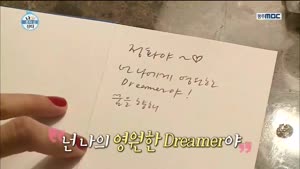 광주MBC
정화야 ~ ♡
넌 나에게 영원한
Dreamer야!
꿈을
넌 나의 영원한 Dreamer야